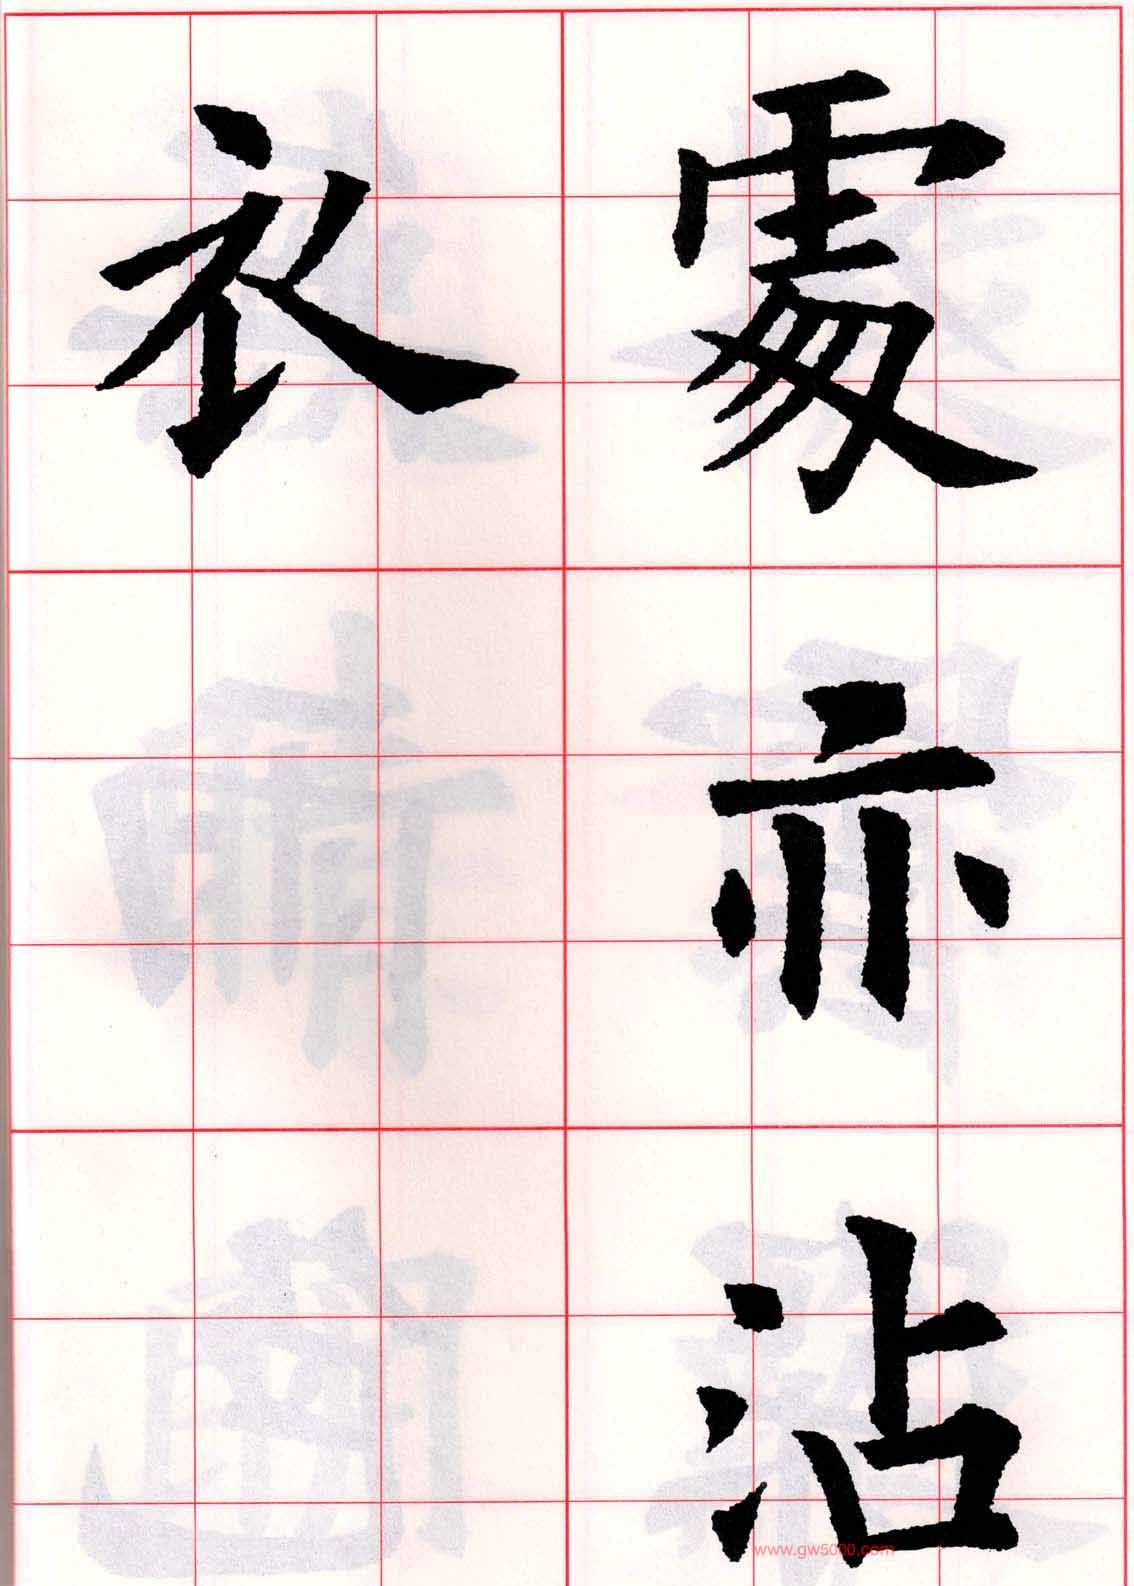 處亦沾
衣
www.gw5000.com